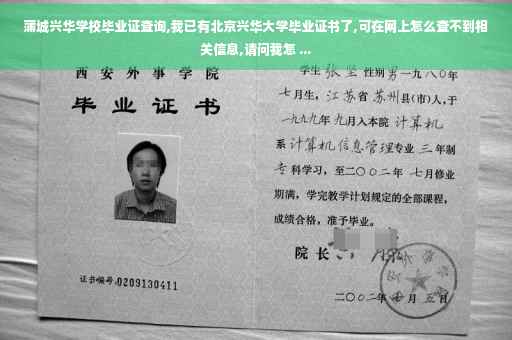 蒲城兴华学校毕业证查询,我已有北京兴华大学毕业证书了,可在网上怎么查不到相
关信息,请问我怎 ...
西安外事学院
毕业证书
证书编号:0209130411
学生 张坚 性别 男 一九八〇年
七月生，江苏省 苏州县(市)人，于
一九九九年九月入本院 计算机
系 计算机信息管理专业 三年制
专科学习，至二〇〇二年 七月修业
期满，学完教学计划规定的全部课程，
成绩合格，准予毕业。
院长
二〇〇二年 月 五日